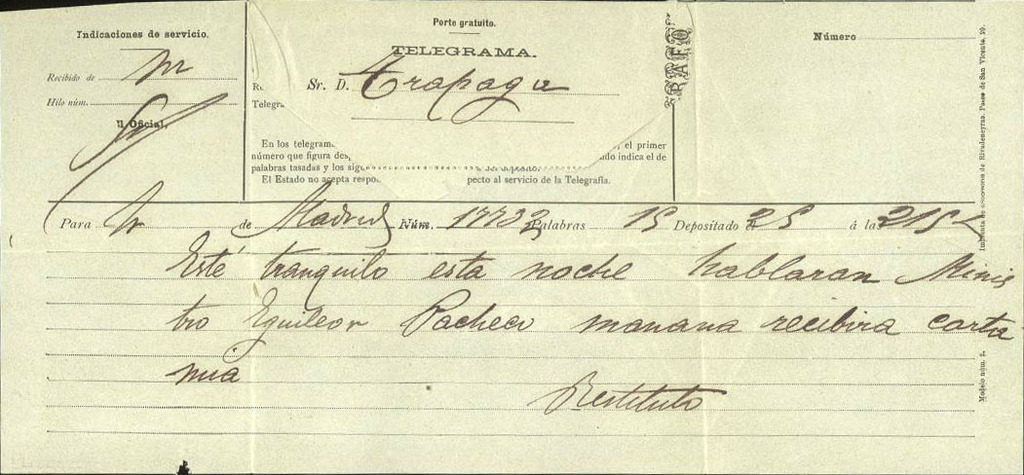 Indicaciones de servicio.
Recibido de
Hilo núm.
l Oficial,
Porte gratuito.
TELEGRAMA.
Sr. D. Trapaga
Telegr
En los telegram
número que figura des
palabras tasadas y los sig
El Estado no acepta respo
el primer
do indica el de
del depósito.
pecto al servicio de la Telegrafía.
RAFO
Número
Para de Madrid Núm. 17732 Palabras 15 Depositado el 25 á la 215
Esté tranquilo esta noche hablaran Minis
tro Eguileor Pacheco manana recibira carta
mia
Restituto
Imprenta de sucesores de Rivadeneyra. Paseo de San Vicente, 20.
Modelo núm. 2.